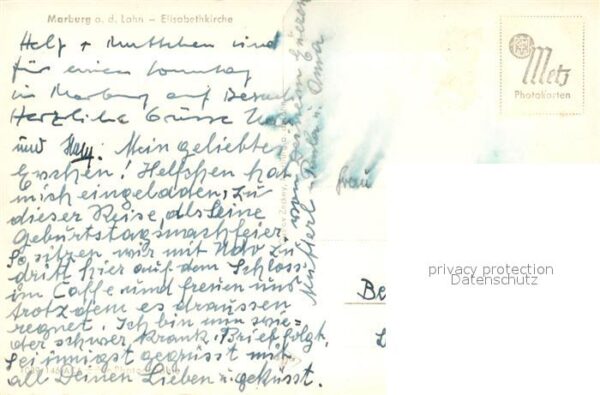 Marburg a. d. Lahn – Elisabethkirche
Helf + Muttchen sind
für einen Sonntag
in Marburg auf Besuch
Herzliche Grüsse Udo
und Mein geliebtes
Evchen! Helfchen hat
mich eingeladen, zu
dieser Reise, als Seine
Geburtstagsnachfeier
So sitzen wir mit Udo zu
dritt hier auf dem Schloss
im Caffe und freuen uns
trotzdem es draussen
regnet. Ich bin nun wie=
der schwer krank. Brief folgt.
Sei innigst gegrüsst mit
all Deinen Lieben u. geküsst.
von Deinem
Mutterl u. Oma
Metz
Photokarten
Frau
Be
privacy protection
Datenschutz